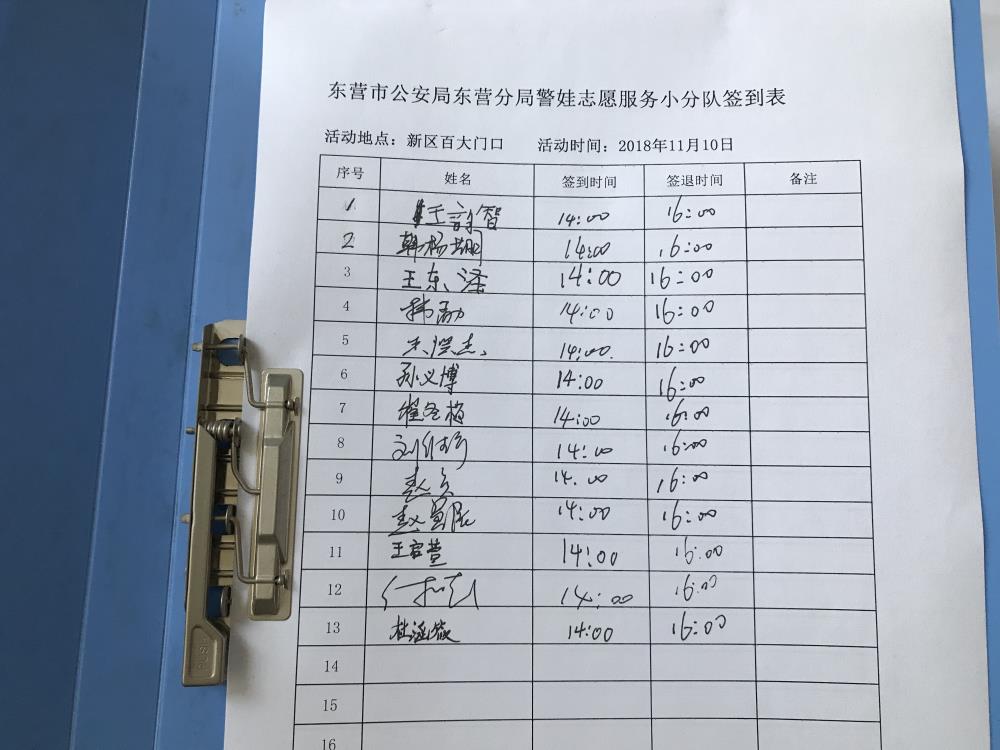 东营市公安局东营分局警娃志愿服务小分队签到表
活动地点：新区百大门口 活动时间：2018年11月10日
序号 姓名 签到时间 签退时间 备注
1 王韵智 14:00 16:00
2 韩杨 14:00 16:00
3 王东泽 14:00 16:00
4 韩勐 14:00 16:00
5 14:00. 16:00
6 孙义博 14:00 16:00
7 14:00 16:00
8 刘 14:00 16:00
9 赵 14:00 16:00
10 赵 14:00 16:00
11 王官萱 14:00 16:00
12 14:00 16:00
13 杜涵筱 14:00 16:00
14
15
16
PUSH